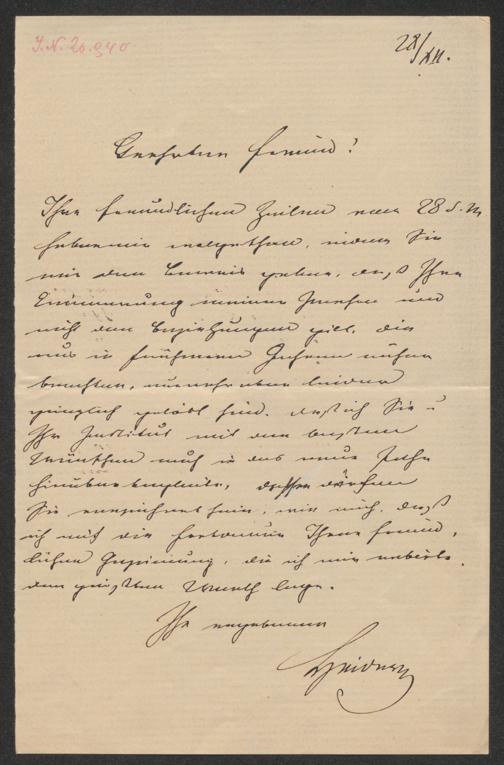 I.N. 20.940
28/XII.
Geehrter Freund!
Ihre freundlichen Zeilen vom 28 d. M
haben mir wolgethan, indem Sie
mir den Beweis geben, daß Ihre
Erinnerung meiner Person und
auch den Beziehungen gilt, die
uns in früheren Jahren näher
brachten, nunmehr aber leider
gänzlich gelöst sind. Daß ich Sie u
Ihr Institut mit den besten
Wünschen auch in das neue Jahr
hinüber begleite, dessen dürfen
Sie versichert sein, wie auch, daß
ich auf die Fortdauer Ihrer freund,
lichen Gesinnung, die ich mir erbitte,
den größten Werth lege.
Ihr ergebener